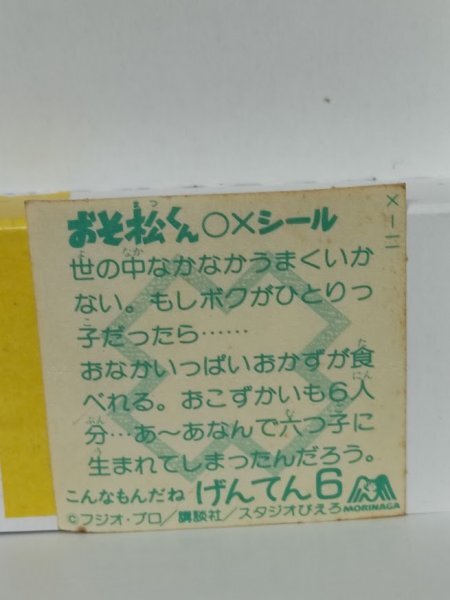 おそ松くん○×シール
×ー二
世の中なかなかうまくいか
ない。もしボクがひとりっ
子だったら……
おなかいっぱいおかずが食
べれる。おこずかいも6人
分…あ〜あなんで六つ子に
生まれてしまったんだろう。
こんなもんだね げんてん6
MORINAGA
©フジオ・プロ/講談社/スタジオぴえろ